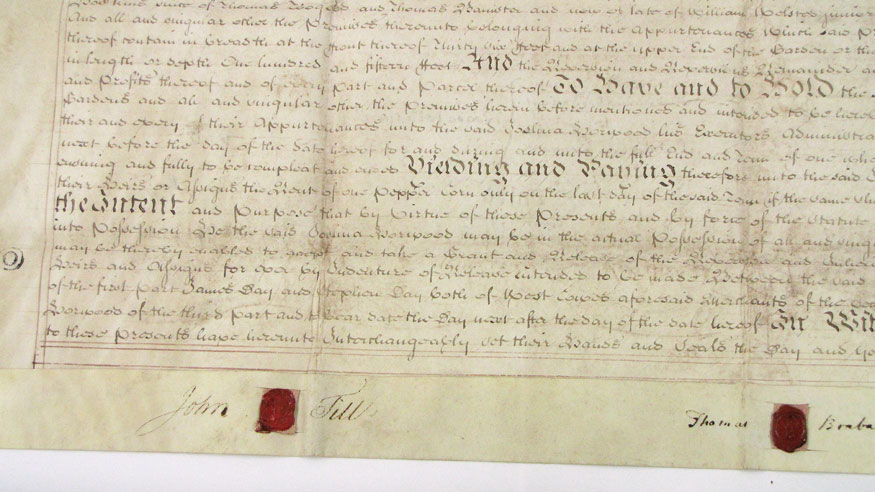 And all and singular other the Premises thereunto belonging with the Appurtenances Which said
thereof contain in breadth at the front thereof Thirty One feet and at the upper End of the Garden or
in length or depth One hundred and fifteen feet And the Reversion and Reversions Remainder
and Profits thereof and of every part and Parcel thereof To Have and to Hold the
Gardens and all and singular other the Premises herein before mentioned and intended to be
their and every of their Appurtenances unto the said Joshua Norwood his Executors
next before the day of the date hereof for and during and unto the full End and Term of one
ensuing and fully to be compleat and ended Yielding and Paying therefore unto the said
their Heirs or Assigns the Rent of one Pepper Corn only on the last day of the said Term if the same
the Intent and Purpose that by Virtue of these Presents and by force of the Statute
into Possession the said Joshua Norwood may be in the actual Possession of all and
may be thereby enabled to accept and take a Grant and Release of the Reversion and
Heirs and Assigns for ever by Indenture of Release intended to be made Between the said
of the first part James Day and Stephen Day both of West Cowes aforesaid Merchants of the
Norwood of the third Part and to bear date the Day next after the day of the date hereof In
to these Presents have hereunto Interchangeably set their Hands and Seals the Day and
John Till
Thomas